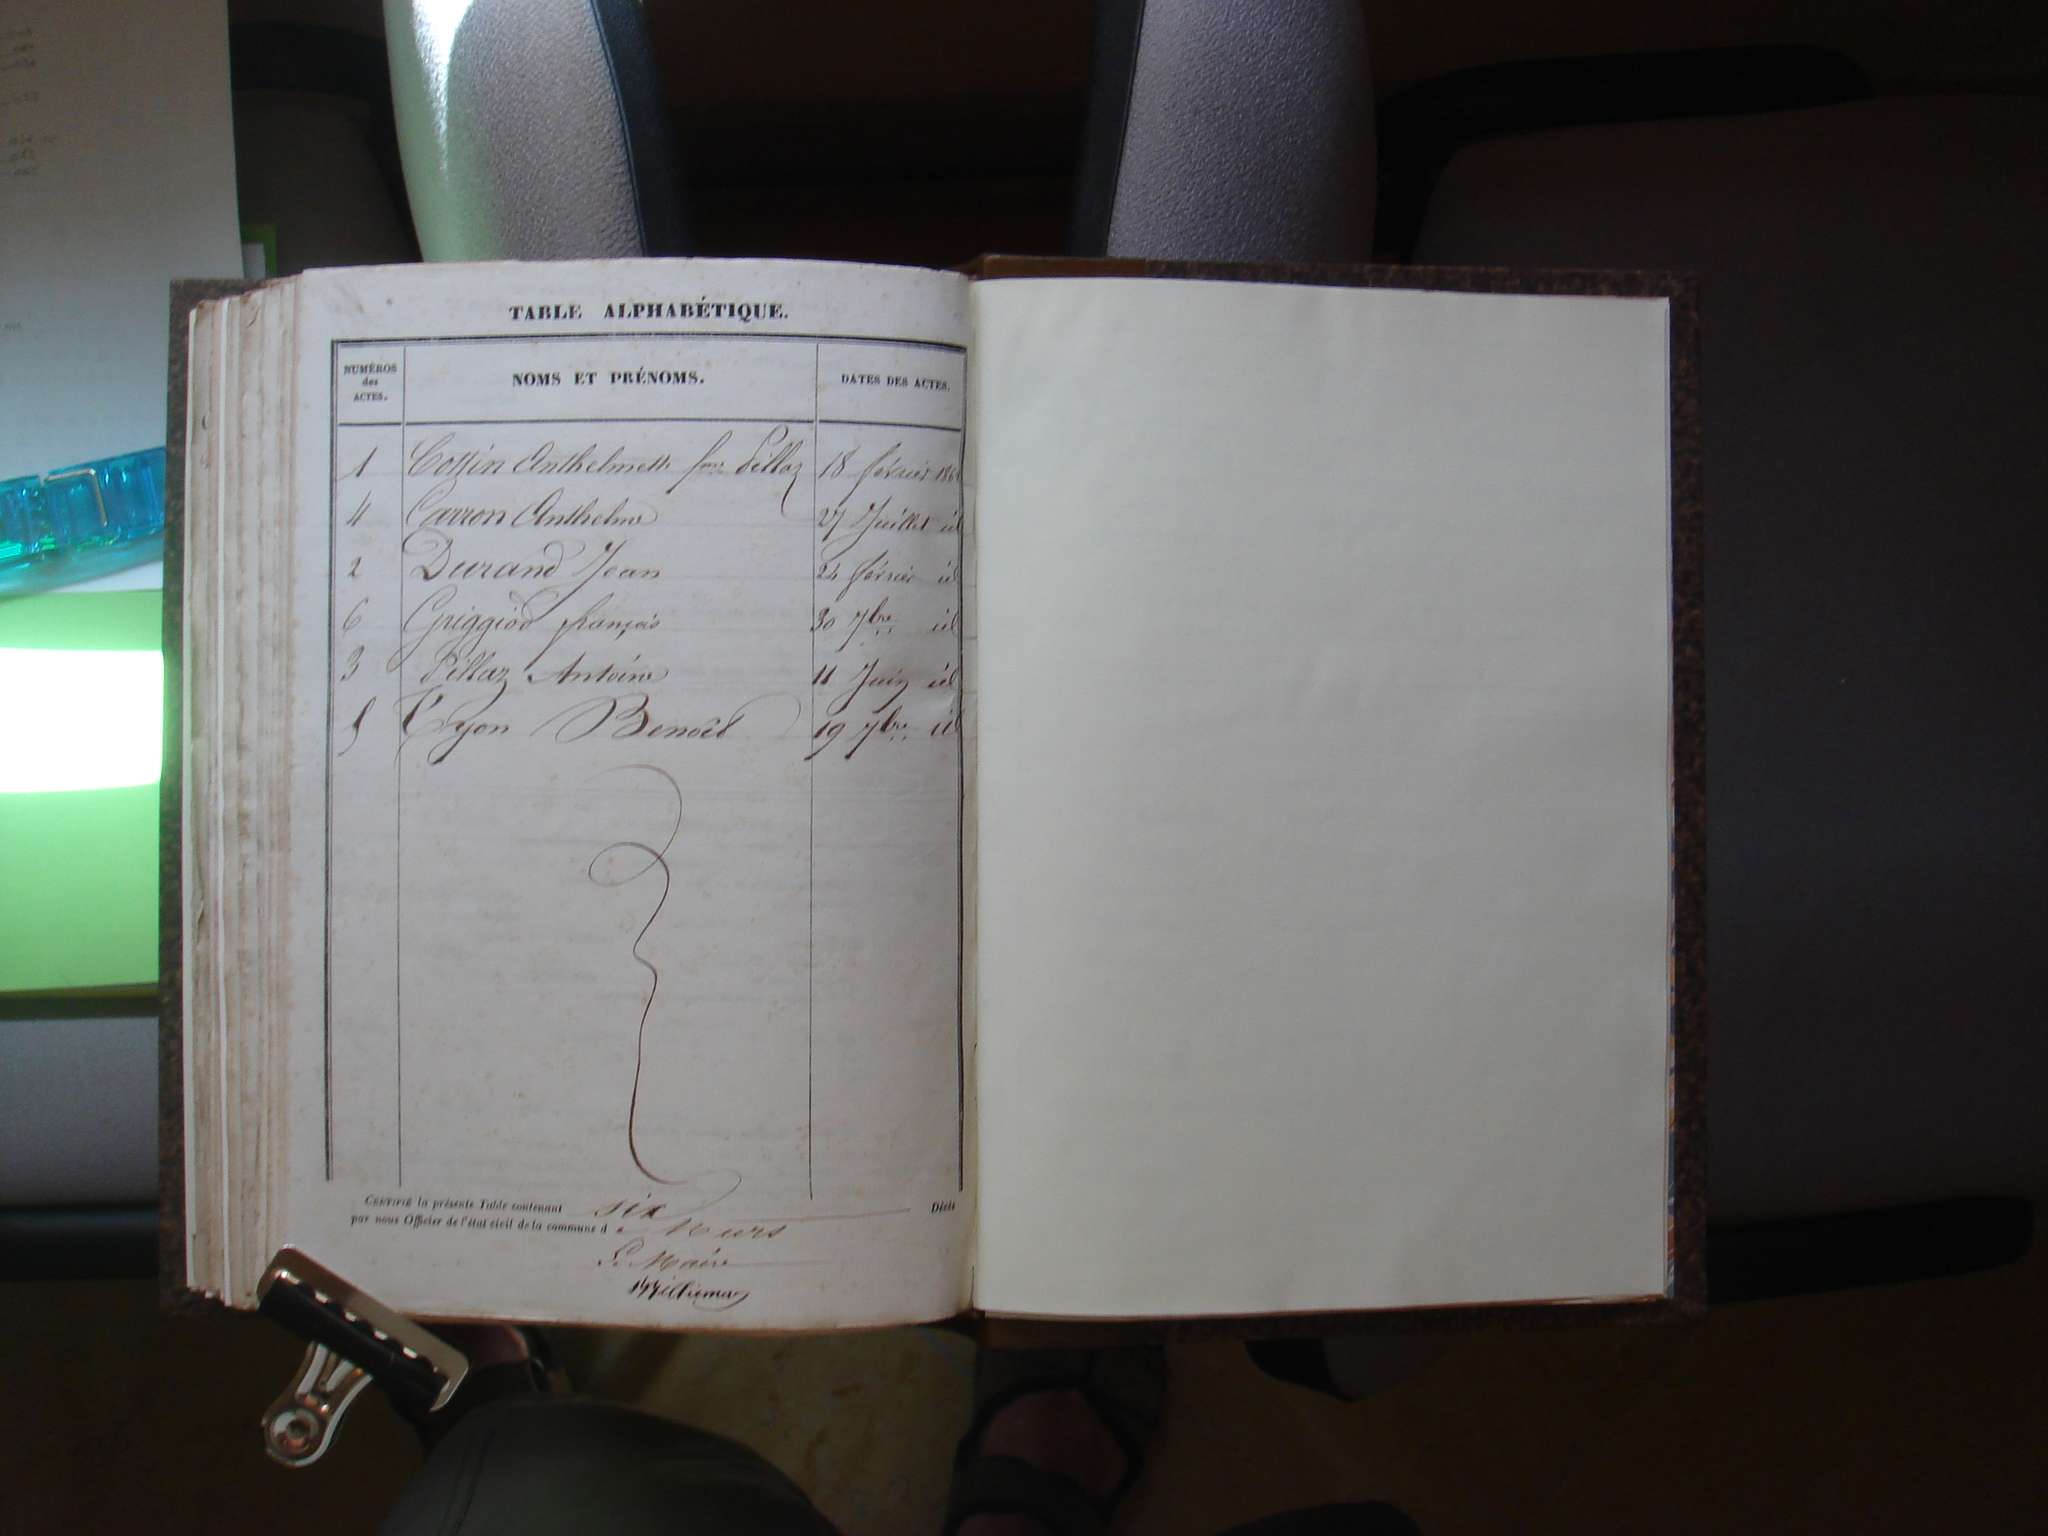 TABLE ALPHABÉTIQUE.
NUMÉROS des ACTES. NOMS ET PRÉNOMS. DATES DES ACTES.
1 Cossin Anthelmette fme Pillaz 18 février
4 Carron Anthelme 27 Juillet id
2 Durand Jean 24 février id
6 Griggiod françois 30 7bre id
3 Pillaz Antoine 11 Juin id
5 Tyon Benoit 19 7bre id
CERTIFIÉ la présente Table contenant six Décès
par nous Officier de l'état civil de la commune d e Murs
Le Maire